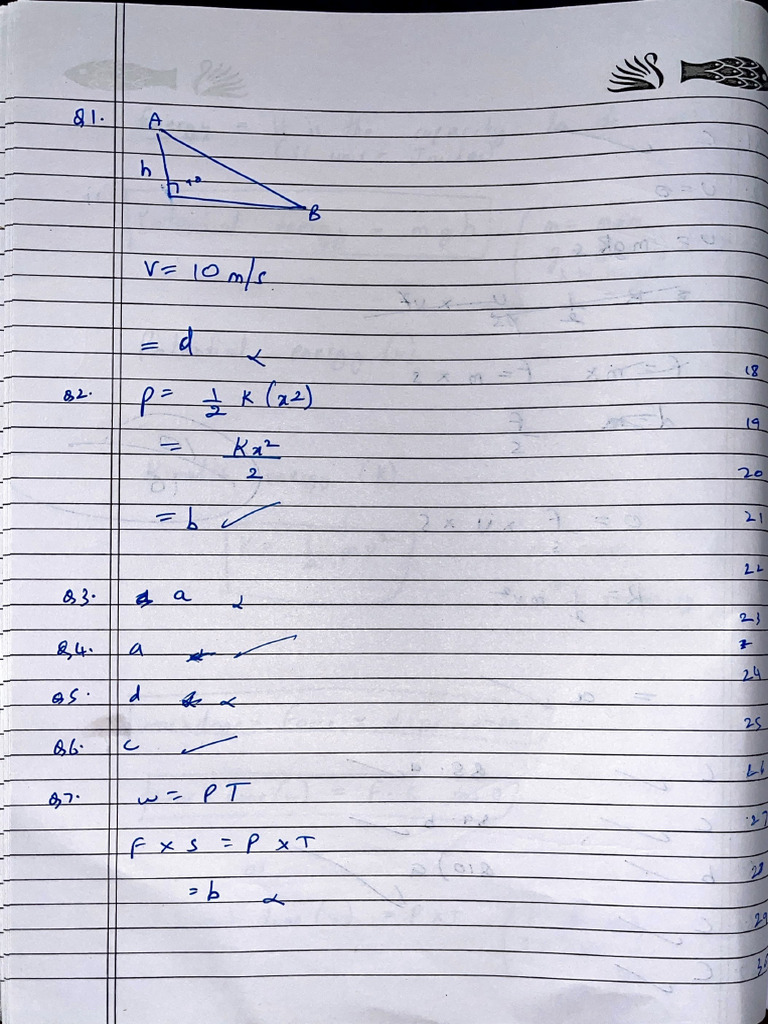 Q1. A
h
B
V = 10 m/s
= d
Q2. P = 1/2 K (x2)
= Kx²/2
= b ✓
Q3. a
Q4. a ✓
Q5. d
Q6. c ✓
Q7. w = PT
F x s = P x T
= b
18
19
20
21
22
23
24
25
26
27
28
29
30